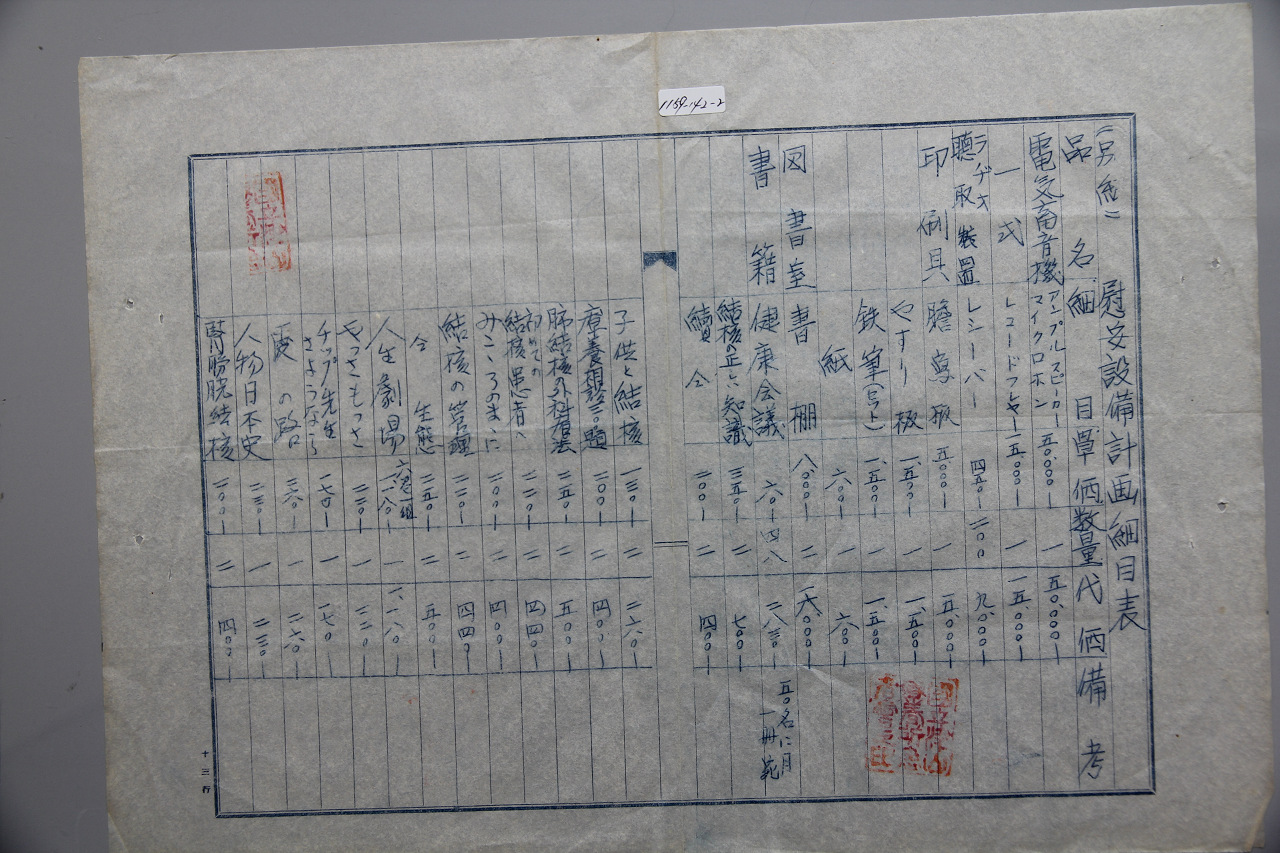 1159-142-2
(別紙二) 慰安設備計画細目表
品名 細目 単価 数量 代価 備考
電気蓄音機 アンプルスピーカー 五〇.〇〇〇ー 一 五〇.〇〇〇ー
一式 マイクロホン
レコードプレヤー 一五.〇〇〇ー 一 一五.〇〇〇ー
ラヂオ聴取装置 レシーバー 四五〇ー 二〇〇 九〇.〇〇〇ー
印刷具 謄写板 五.〇〇〇ー 一 五.〇〇〇ー
やすり板 一.五〇〇ー 一 一.五〇〇ー
鉄筆 一.五〇〇ー 一 一.五〇〇ー
紙 六〇〇ー 一 六〇〇ー
図書室 書棚 八.〇〇〇ー 二 一六.〇〇〇ー
書籍 健康会議 六〇ー 四八 五〇名に月一冊宛
結核の正しい知識 三五〇ー 二 七〇〇ー
続 仝 二〇〇ー 二 四〇〇ー
子供と結核 一三〇ー 二 二六〇ー
療養相談 題 二〇〇ー 二 四〇〇ー
肺結核の外科療法 二五〇ー 二 五〇〇ー
初めての結核患者へ 二二〇ー 二 四四〇ー
みこころのまゝに 二〇〇ー 二 四〇〇ー
結核の管理 二二〇ー 二 四四〇ー
仝 生態 二五〇ー 二 五〇〇ー
人生劇場 一.一八〇ー 一 一.一八〇ー
やっさもっさ 一
チップ先生さようなら 一七〇ー 一 一七〇ー
愛の路 二六〇ー 一 二六〇ー
人物日本史 二三〇ー 一 二三〇ー
腎膀胱結核 二〇〇ー 二 四〇〇ー
十三行